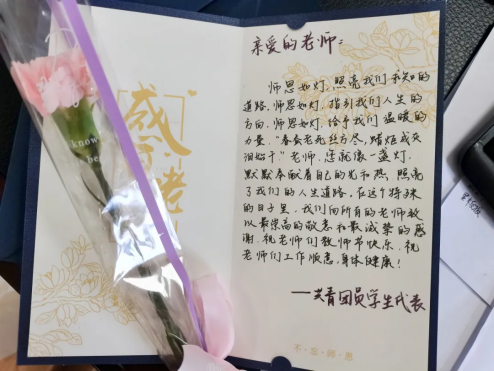 亲爱的老师：
师恩如灯，照亮我们求知的
道路。师恩如灯，指引我们人生的
方向。师恩如灯，给予我们温暖的
力量。"春蚕老死丝方尽，蜡炬成灰
泪始干"老师，您就像一盏灯，
默默奉献着自己的光和热，照亮
了我们的人生道路。在这个特殊
的日子里，我们向所有的老师致
以最崇高的敬意和最诚挚的感
谢。祝老师们教师节快乐，祝
老师们工作顺意，身体健康！
——共青团员学生代表
不忘师恩
感
know
be